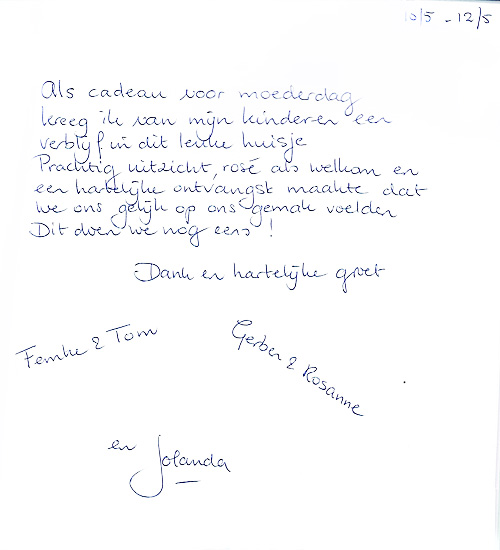 10/5 - 12/5
Als cadeau voor moederdag
kreeg ik van mijn kinderen een
verblijf in dit leuke huisje
Prachtig uitzicht, rosé als welkom en
een hartelijke ontvangst maakte dat
we ons gelijk op ons gemak voelden
Dit doen we nog eens !
Dank en hartelijke groet
Femke & Tom
Gerben & Rosanne
en Jolanda